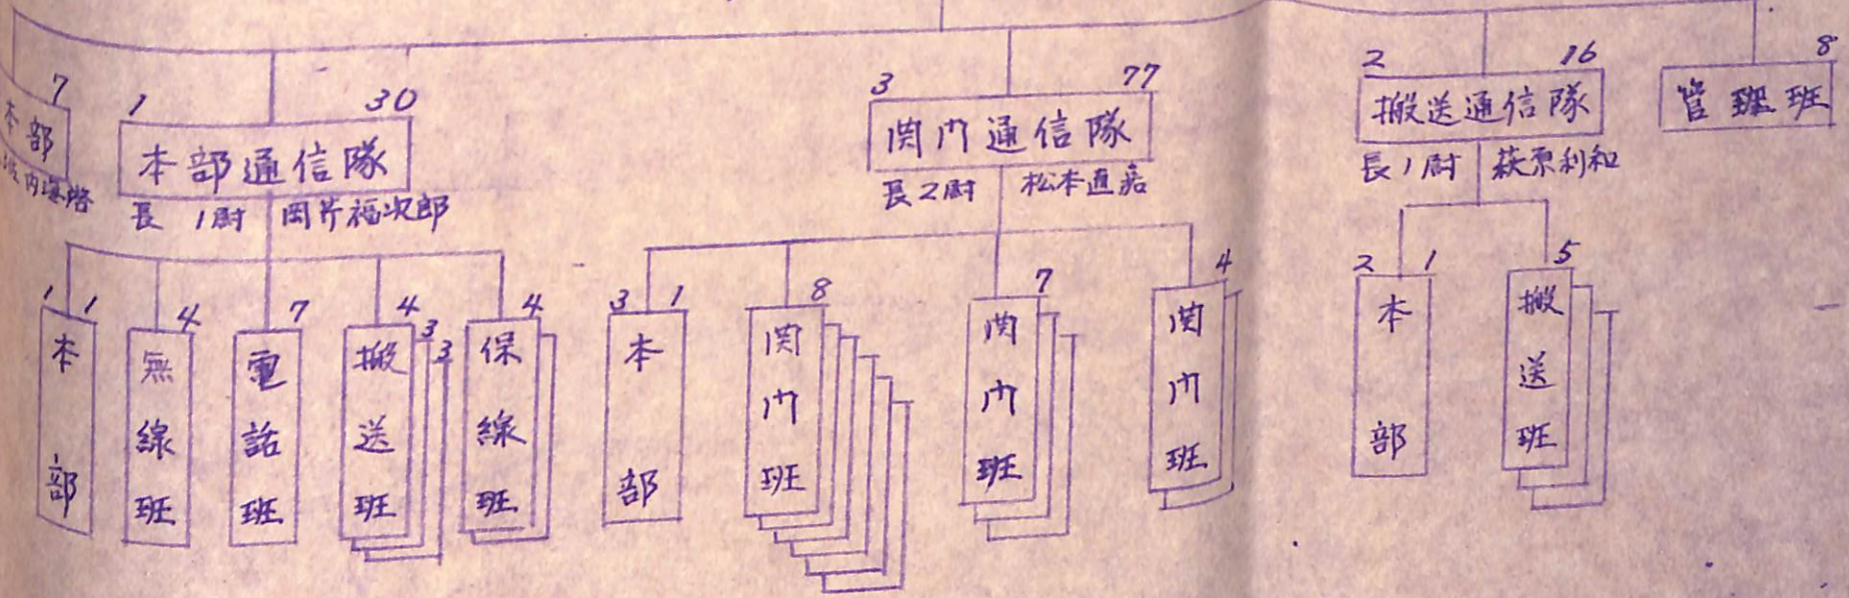 7
本部
1 30
本部通信隊
長 1尉 岡芹福次郎
1 1
本部
4
無線班
7
電話班
4 3 3
搬送班
4
保線班
3 77
関門通信隊
長2尉 松本直
3 1
本部
8
関門班
7
関門班
4
関門班
2 16
搬送通信隊
長1尉 萩原利和
2 1
本部
5
搬送班
8
管理班